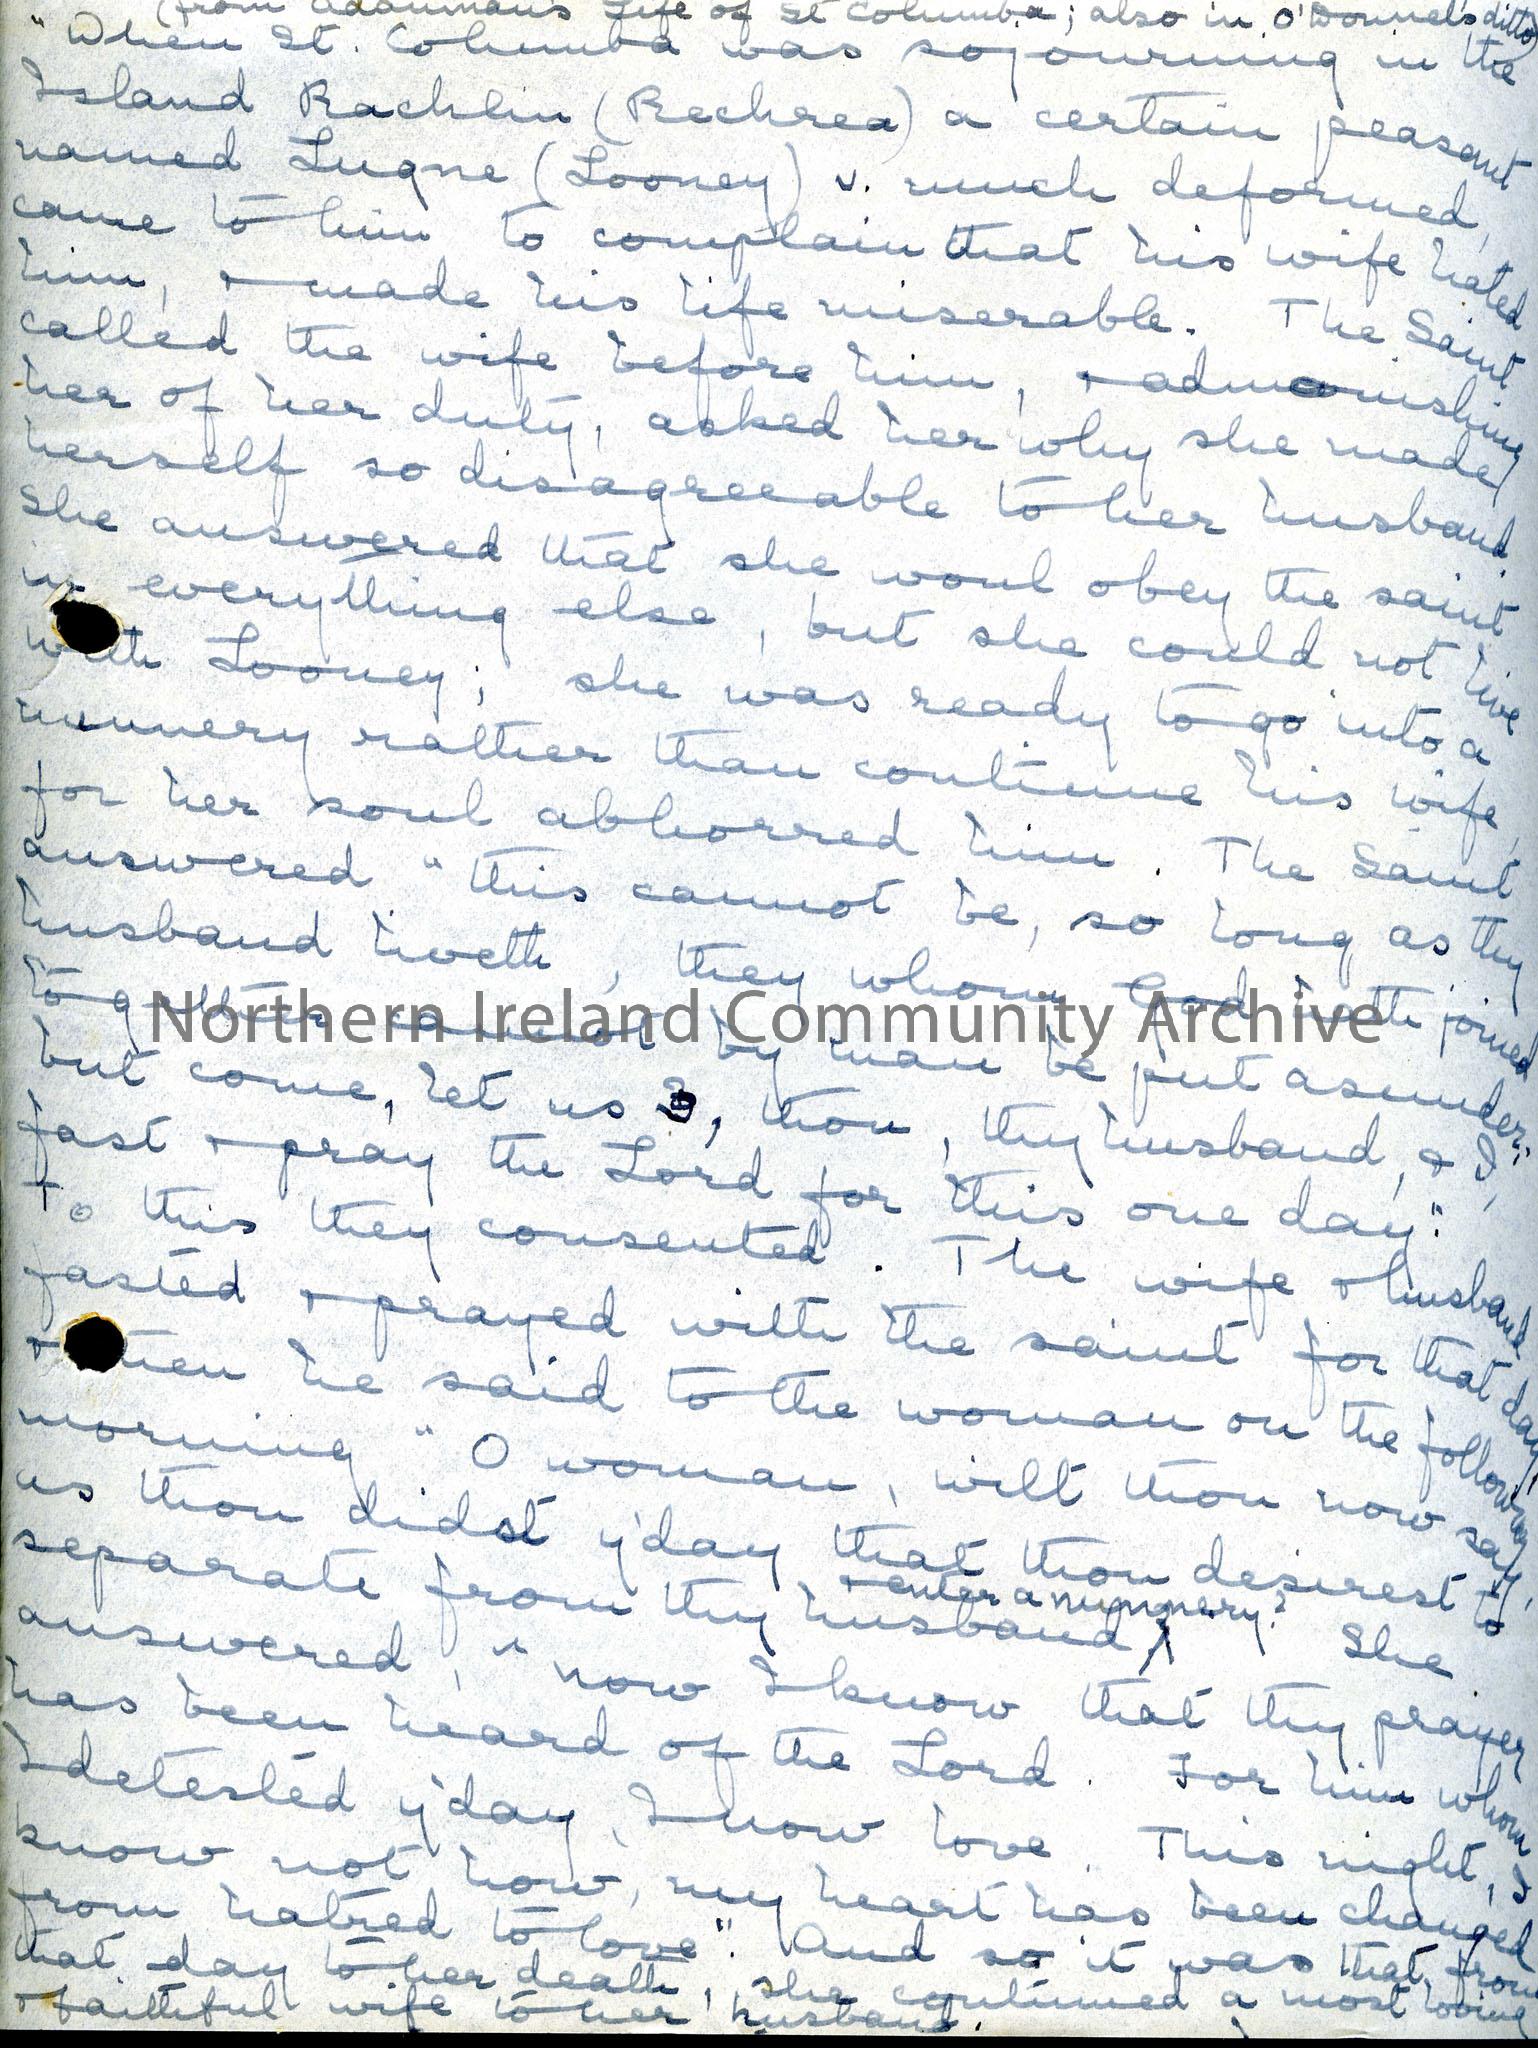 (from Adamnan's Life of St Columba; also in O'Donnel's ditto
"When St. Columba was sojourning in the
Island Rachlin (Rechrea) a certain peasant
named Lugne (Looney) v. much deformed,
came to him to complain that his wife hated
him, + made his life miserable. The Saint
called the wife before him, + admonishing
her of her duty, asked her why she made
herself so disagreeable to her husband.
She answered that she woul obey the saint
in everything else, but she could not live
with Looney; she was ready to go into a
nunnery rather than continue his wife,
for her soul abhorred him. The Saint
answered "this cannot be, so long as thy
husband liveth, they whom God hath joined
together cannot by man be put asunder;
but come, let us 3, thou, thy husband, + I,
fast + pray the Lord for this one day".
To this they consented. The wife + husband
fasted + prayed with the saint for that day,
+ then he said to the woman on the following
morning "O woman, wilt thou now say,
us thou didst y'day that thou desirest to
separate from thy husband + enter a nunnery? She
answered, "now I know that thy prayer
has been heard of the Lord. For him whom
I detested y'day, I now love. This night, I
know not how, my heart has been changed
from hatred to love". And so it was that, from
that day to her death, she continued a most loving
+ faithful wife to her husband.
Northern Ireland Community Archive